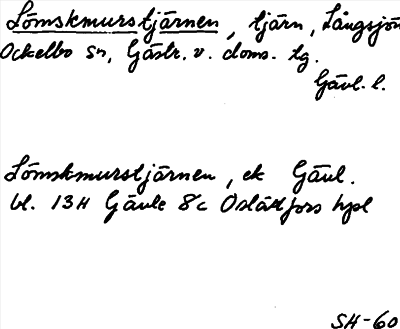 Lömskmurstjärnen, tjärn, Långsjön
Ockelbo sn, Gästr. v. doms. tg.
Gävl. l.
Lömskmurstjärnen, ek Gävl.
bl. 13H Gävle 8c Oslättfors hpl
SH-60